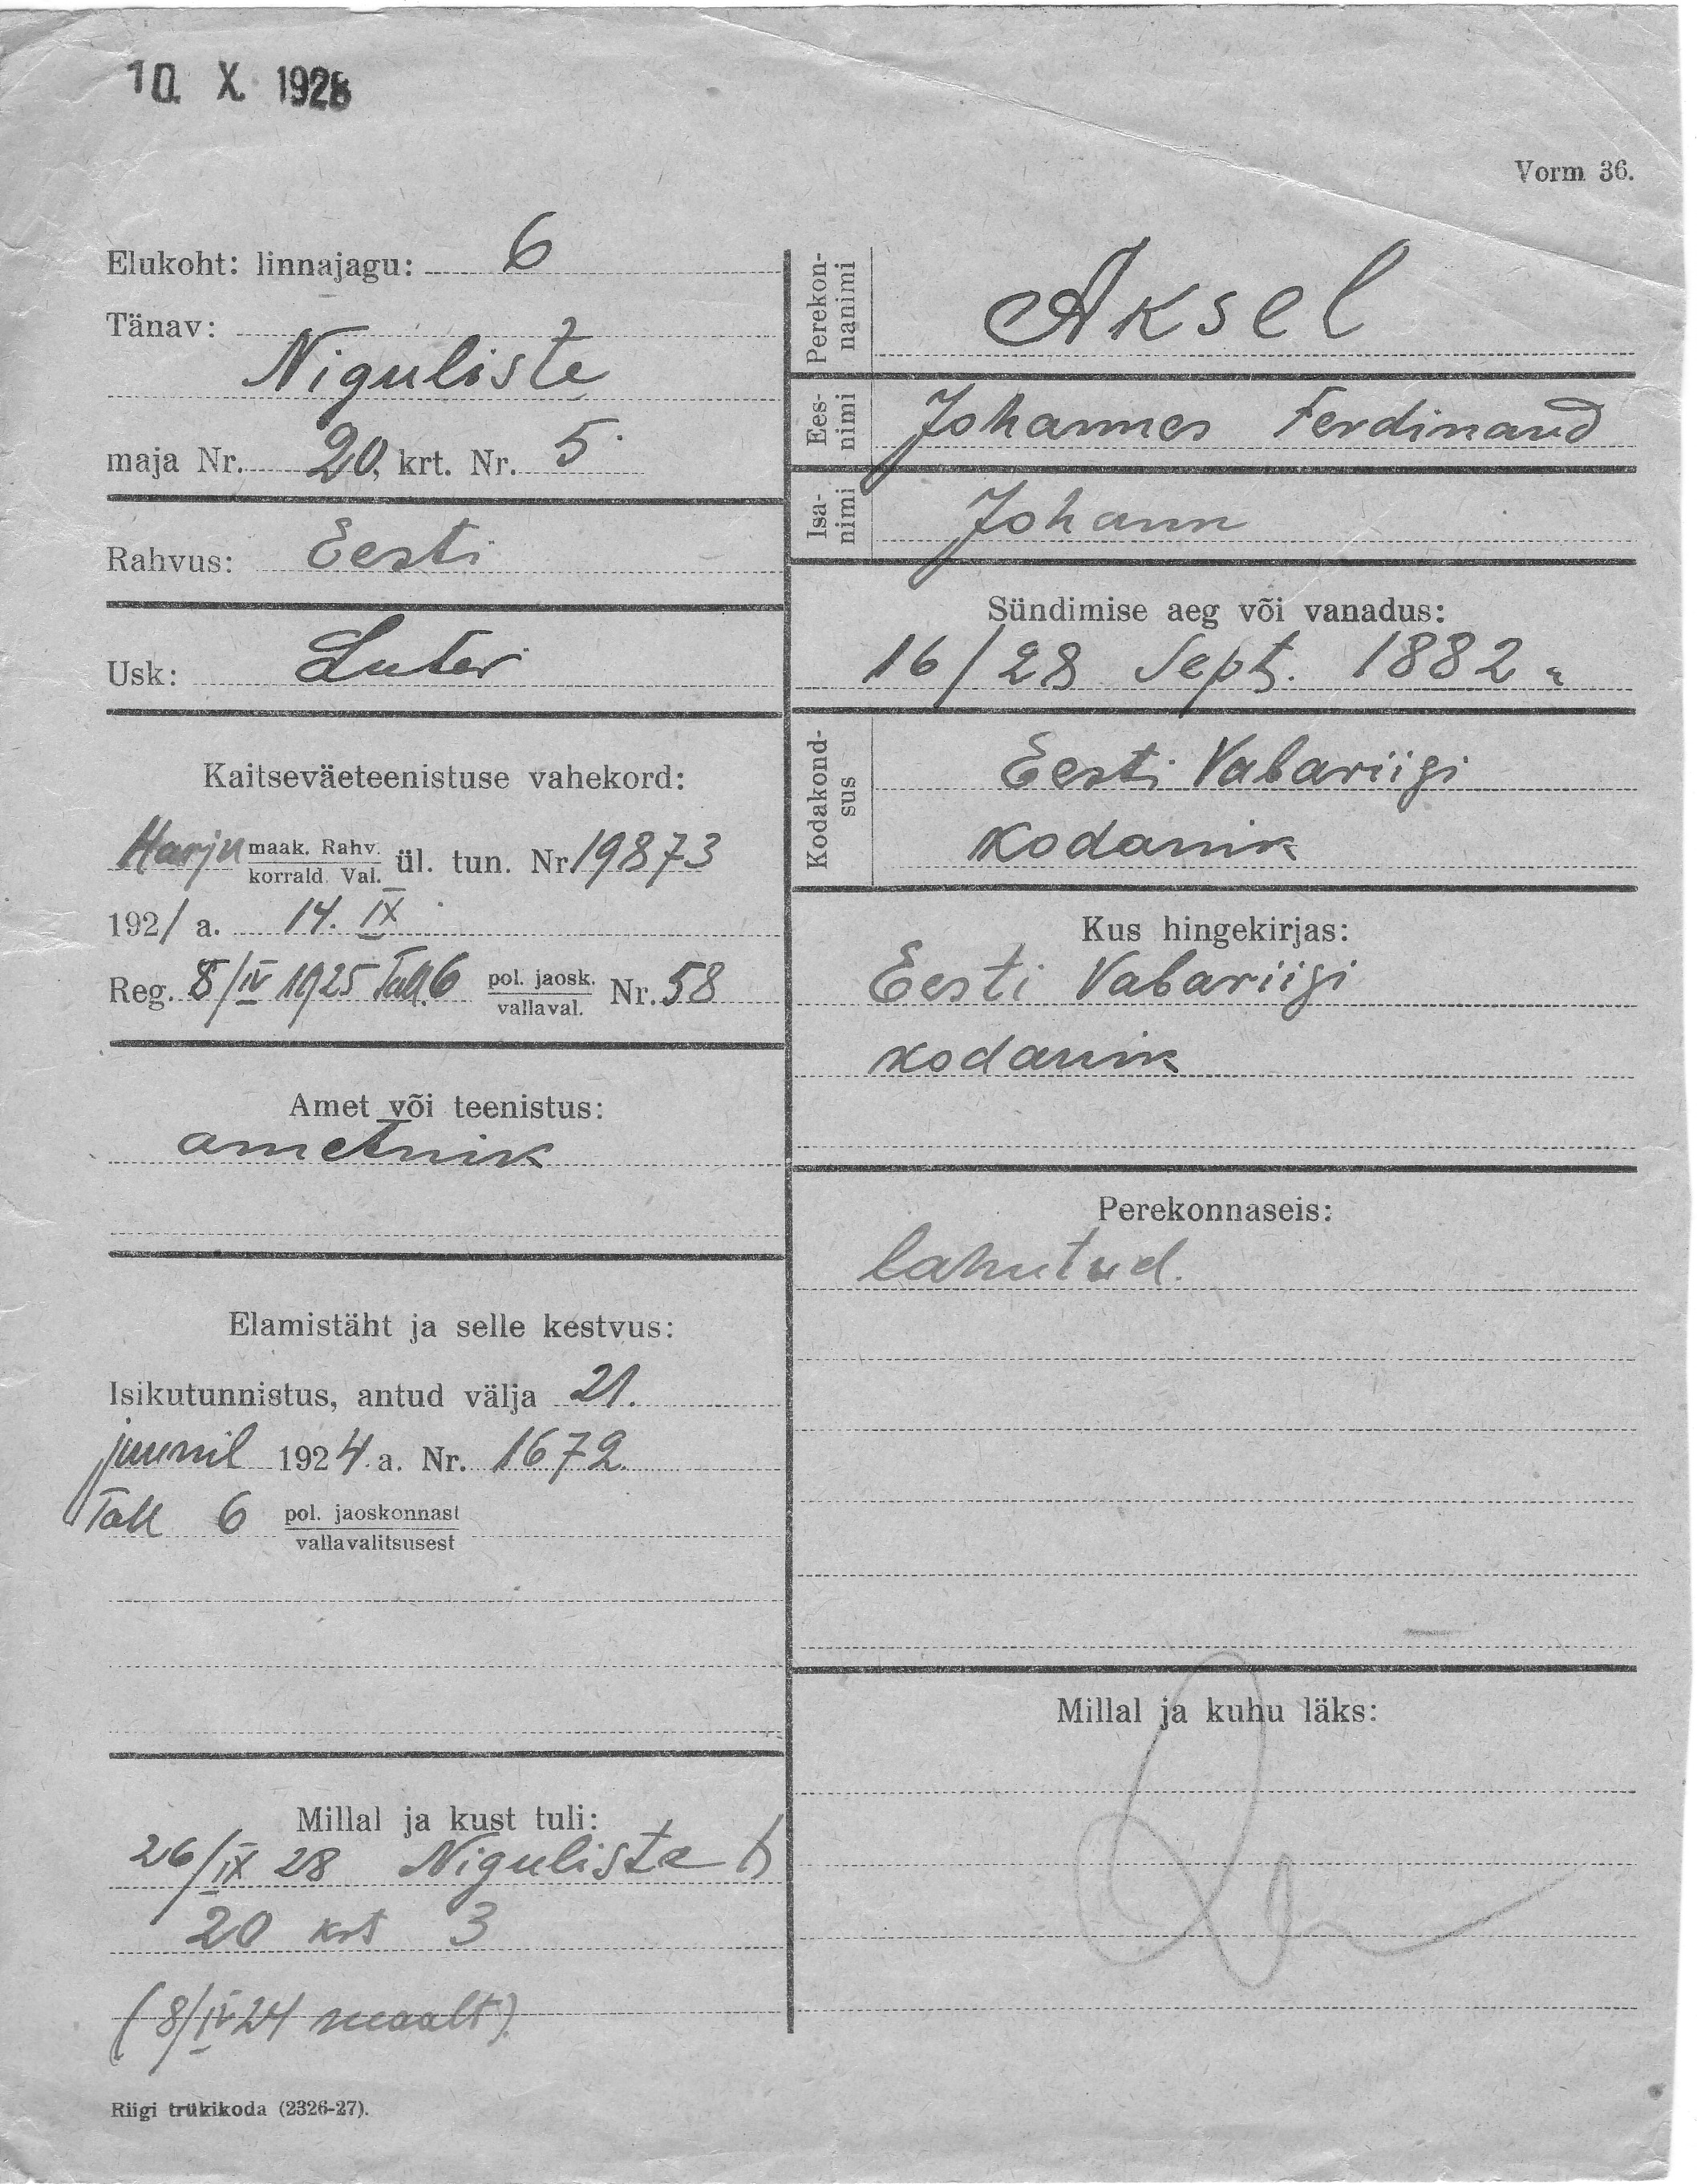 10. X. 1928
Vorm 36.
Elukoht: linnajagu: 6
Tänav:
Niguliste
maja Nr. 20, krt. Nr. 5
Rahvus: Eesti
Usk: Luter
Kaitseväeteenistuse vahekord:
Harju maak. Rahv. ül. tun. Nr 19873
korrald. Val.
1921 a. 14. IX
Reg. 8/IV 1925 Tall. 6 pol. jaosk. Nr. 58
vallaval.
Amet või teenistus:
ametnik
Elamistäht ja selle kestvus:
Isikutunnistus, antud välja 21.
juunil 1924 a. Nr. 1672
Tall 6 pol. jaoskonnast
vallavalitsusest
Millal ja kust tuli:
26/IX 28 Niguliste t
20 krt 3
(8/IV 24 maalt)
Riigi trükikoda (2326-27).
Perekon-
nanimi
Aksel
Ees-
nimi
Johannes Ferdinand
Isa-
nimi
Johann
Sündimise aeg või vanadus:
16/28 Sept. 1882 a
Kodakond-
sus
Eesti Vabariigi
kodanik
Kus hingekirjas:
Eesti Vabariigi
kodanik
Perekonnaseis:
lahutud.
Millal ja kuhu läks: